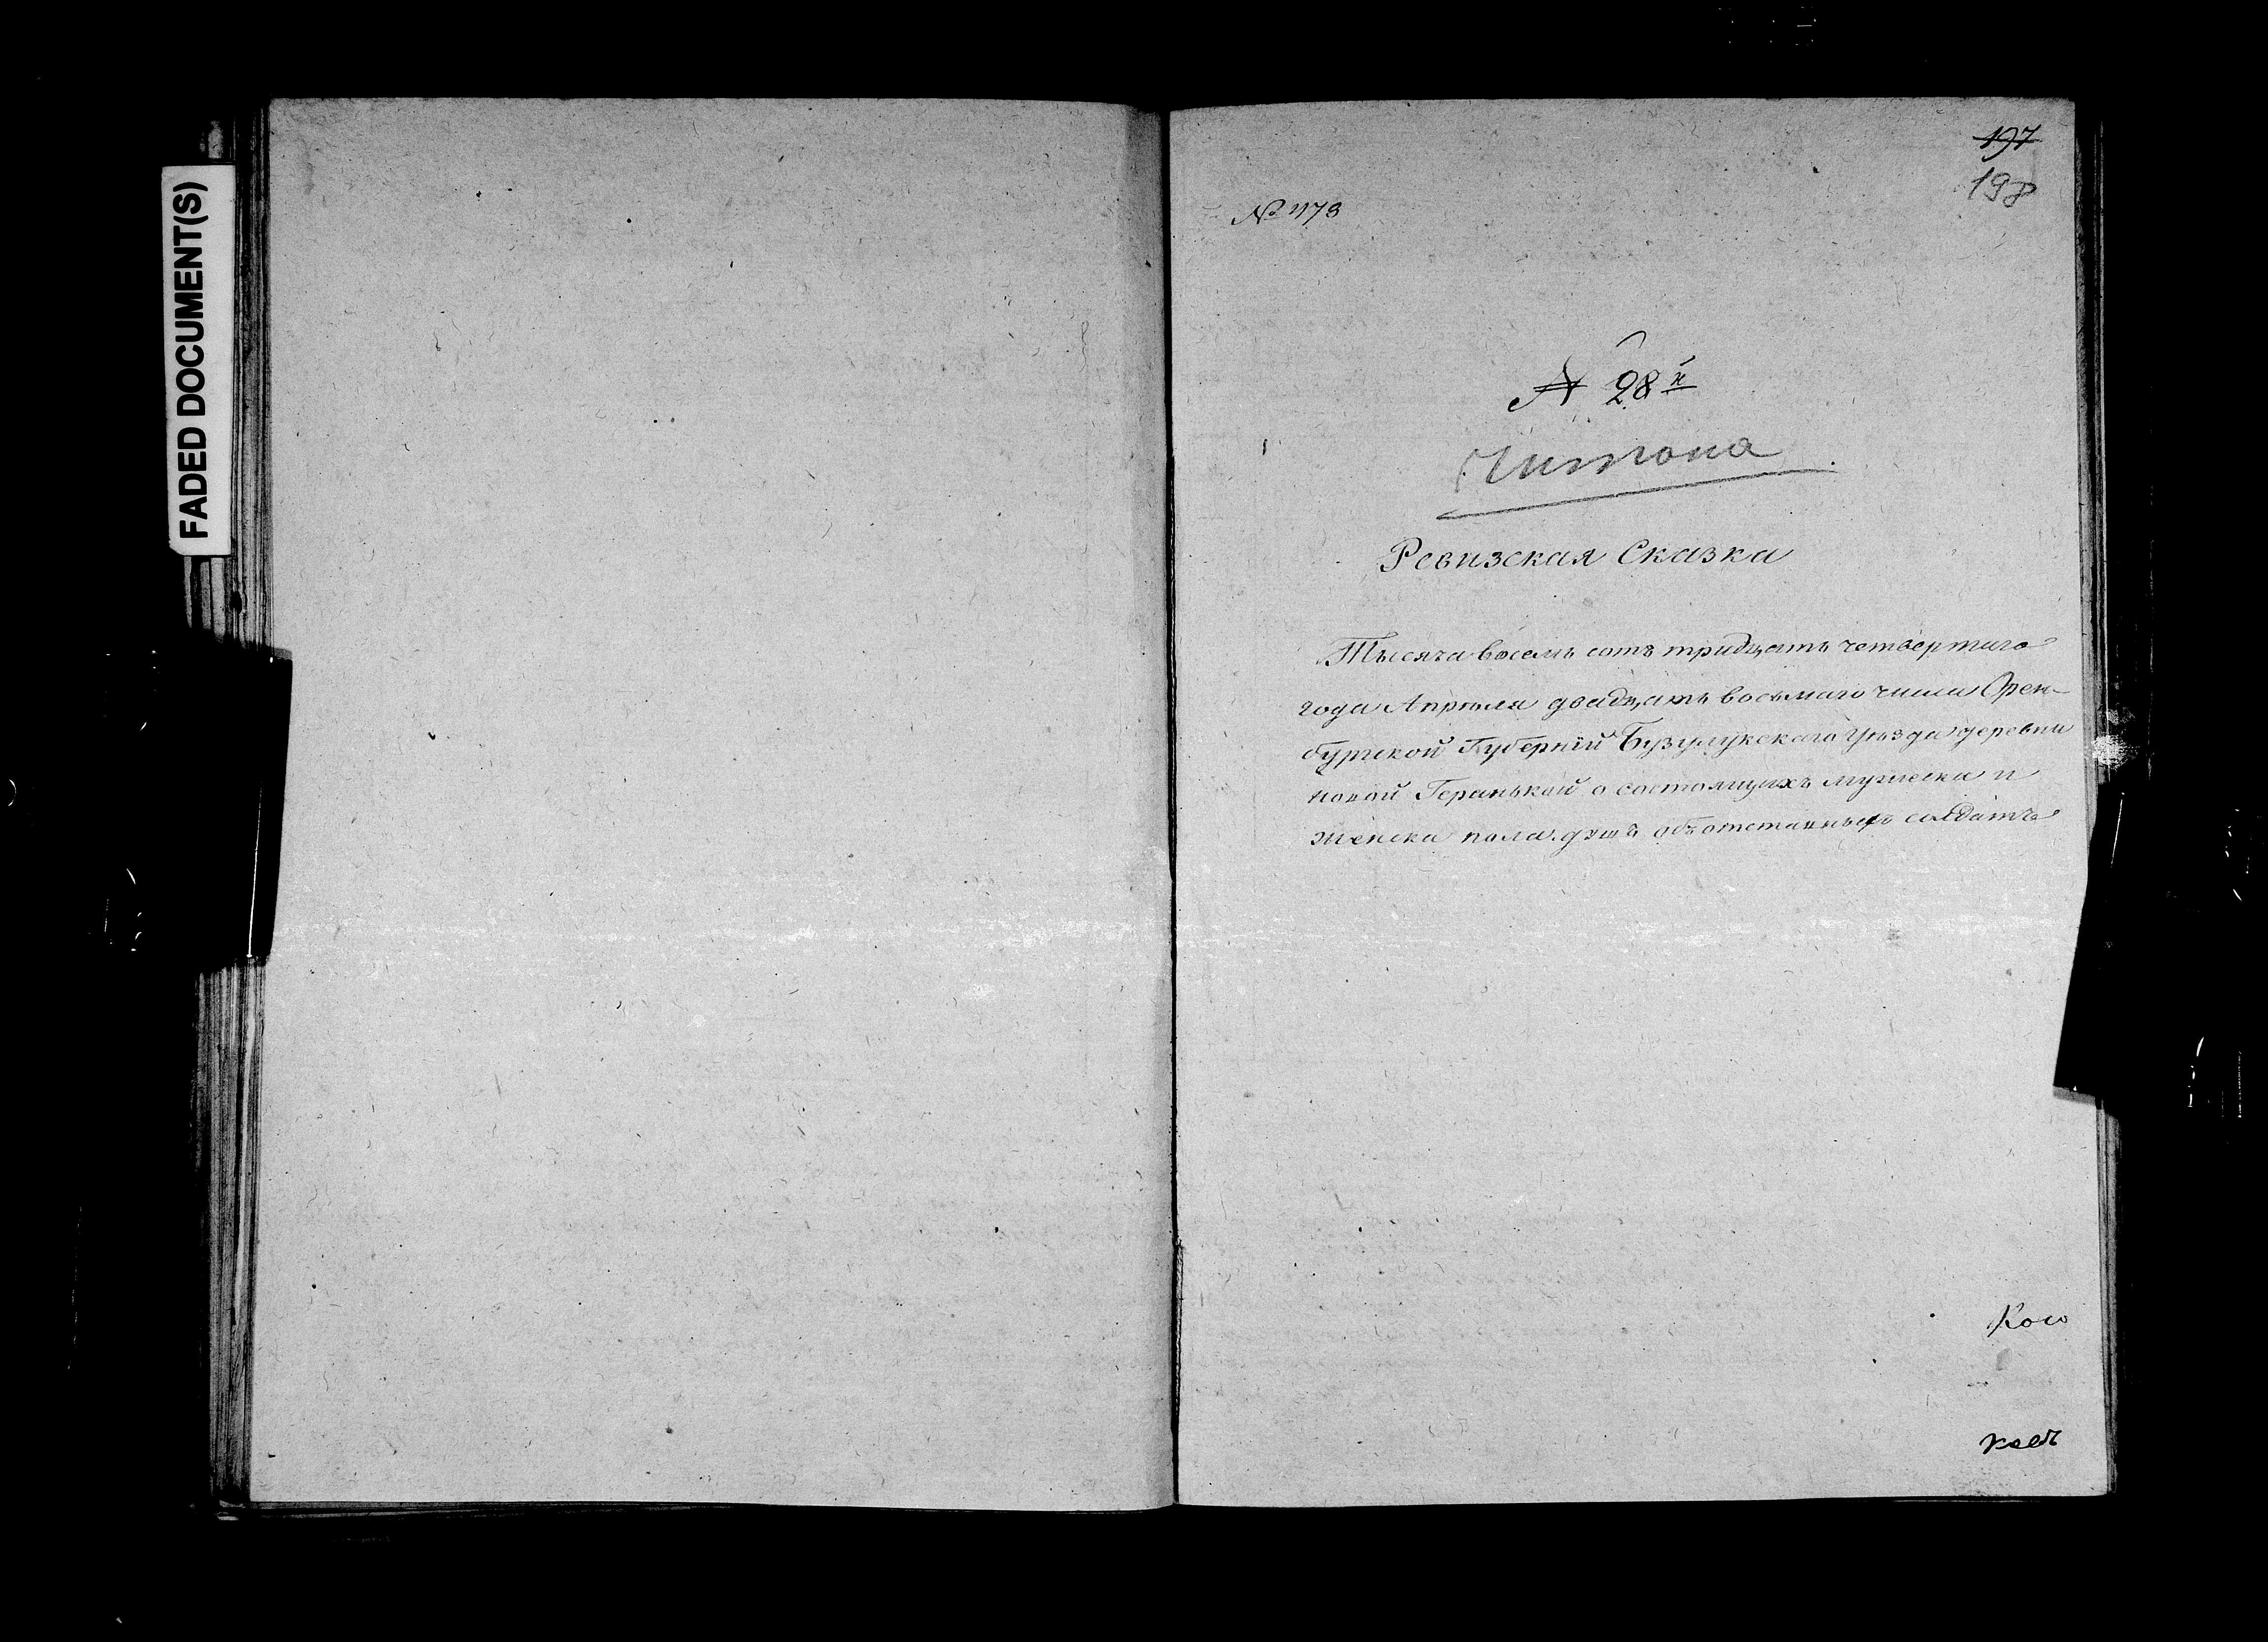 FADED DOCUMENT(S)
197
198
№ 1173
№ 28й
Читона
Ревизская Сказка
Тысяча восемь сотъ тридцать четвертаго
года Апреля двадцать восьмаго числа Орен-
бургской Губернiи Бузулукскаго Уезда деревни
новой Геранькой о состоящихъ мужеска и
женска пола душъ объ отставныхъ солдатъ